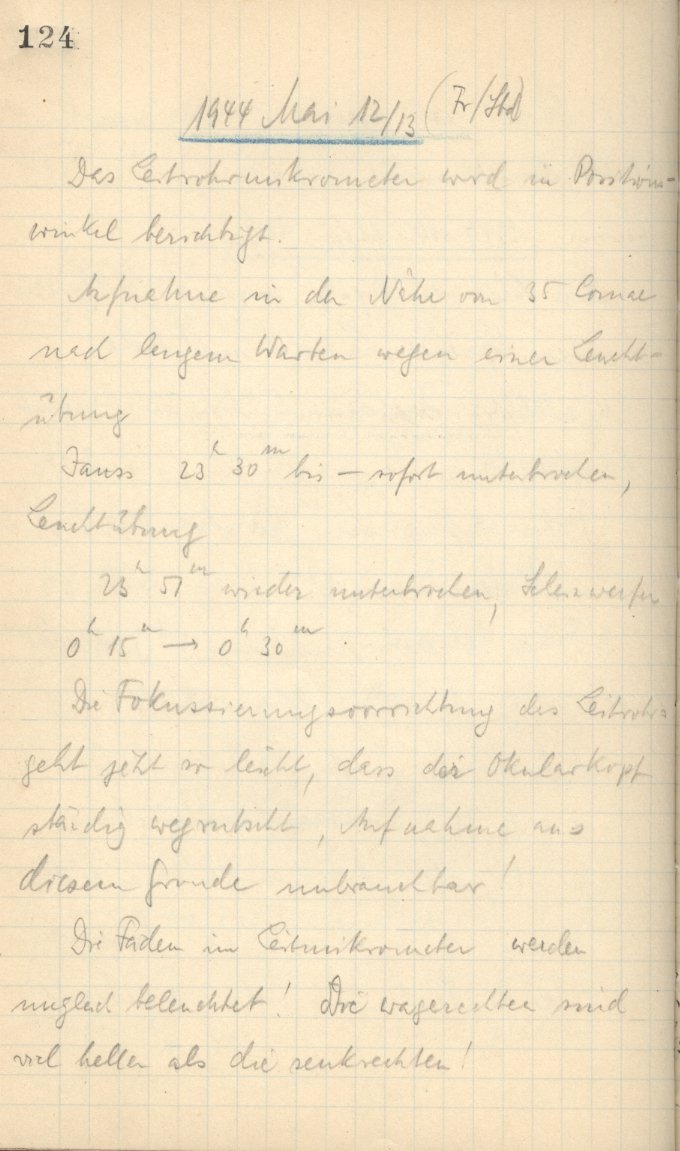 124
1944 Mai 12/13 (Fr/
Das Leitrohrmikrometer wird in Positions-
winkel berichtigt.
Aufnahme in der Nähe von 35 Comae
nach langem Warten wegen einer Leucht-
übung
23h 30m bis — sofort unterbrochen,
Leuchtübung
23h 51m wieder unterbrochen, Scheinwerfer
0h 15m → 0h 30m
Die Fokussierungsvorrichtung des Leitrohrs
geht jetzt so leicht, dass der Okularkopf
ständig wegrutscht, Aufnahme aus
diesem Grunde unbrauchbar!
Die Fäden im Leitmikrometer werden
ungleich beleuchtet! Die wagerechten sind
viel heller als die senkrechten!